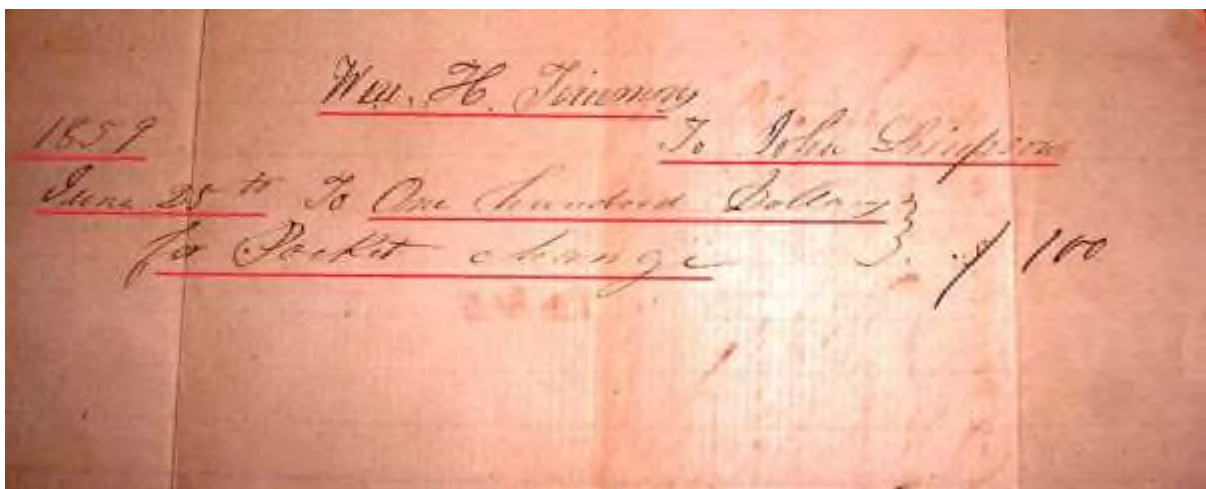 Wm. H. Timmons
1859 To John Simpson
June 25th To One hundred Dollars
for Pocket change $100